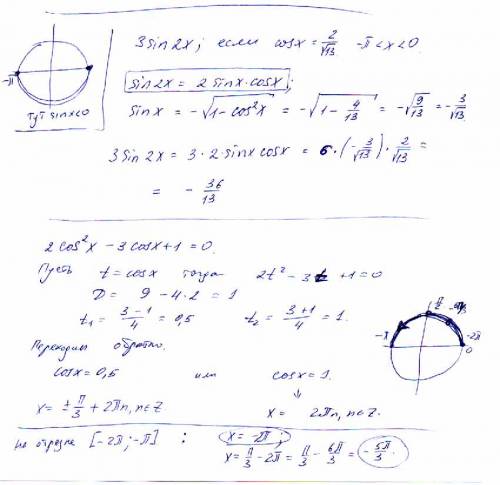 3 sin 2x; если cos x = 2/√13 -π < x < 0.
-π
sin 2x = 2 sin x · cos x;
Тут sin x < 0
sin x = -√(1 - cos²x) = -√(1 - 4/13) = -√(9/13) = -3/√13
3 sin 2x = 3 · 2 · sin x cos x = 6 · (-3/√13) · 2/√13 =
= - 36/13
2 cos²x - 3 cos x + 1 = 0.
Пусть t = cos x тогда 2t² - 3t + 1 = 0
D = 9 - 4·2 = 1
t₁ = (3-1)/4 = 0,5 t₂ = (3+1)/4 = 1.
-π -2π 0
Переходим обратно.
cos x = 0,5 или cos x = 1.
x = ± π/3 + 2πn, n∈Z x = 2πn, n∈Z.
На отрезке [-2π; -π] : x = -2π;
x = π/3 - 2π = π/3 - 6π/3 = -5π/3.